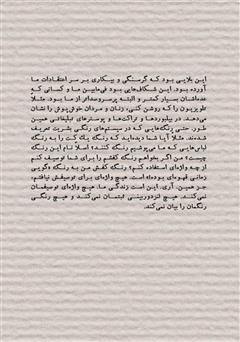 این بلایی بود که گرسنگی و بیکاری بر سر اعتقادات ما
آورده بود. این شکاف‌هایی بود فی‌مابین ما و کسانی که
عده‌شان بسیار کمتر و البته پرسروصداتر از ما بود. مثلا
تلویزیون را که روشن کنی، زنان و مردان خوش‌پوش را نشان
می‌دهد. در بیلبوردها و تراکت‌ها و پوسترهای تبلیغاتی همین
طور. حتی رنگ‌هایی که در سیستم‌های رنگی بشریت تعریف
شدند. مثلا آیا شما دیده‌اید که رنگ یک کت را به رنگ
لباس‌هایی که ما می‌پوشیم رنگ کنند؟ اصلا نام این رنگ
چیست؟ من اگر بخواهم رنگ کفشم را برای شما توصیف کنم
از چه واژه‌ای استفاده کنم؟ رنگ کفش من به رنگ «گویی
زمانی قهوه‌ای بوده» است. هیچ واژه‌ای برای توصیفش نیافتم،
جز همین. آری این است زندگی ما. هیچ واژه‌ای توصیفمان
نمی‌کند. هیچ لنزدوربینی ثبتمان نمی‌کند و هیچ رنگی
رنگمان را بیان نمی‌کند.